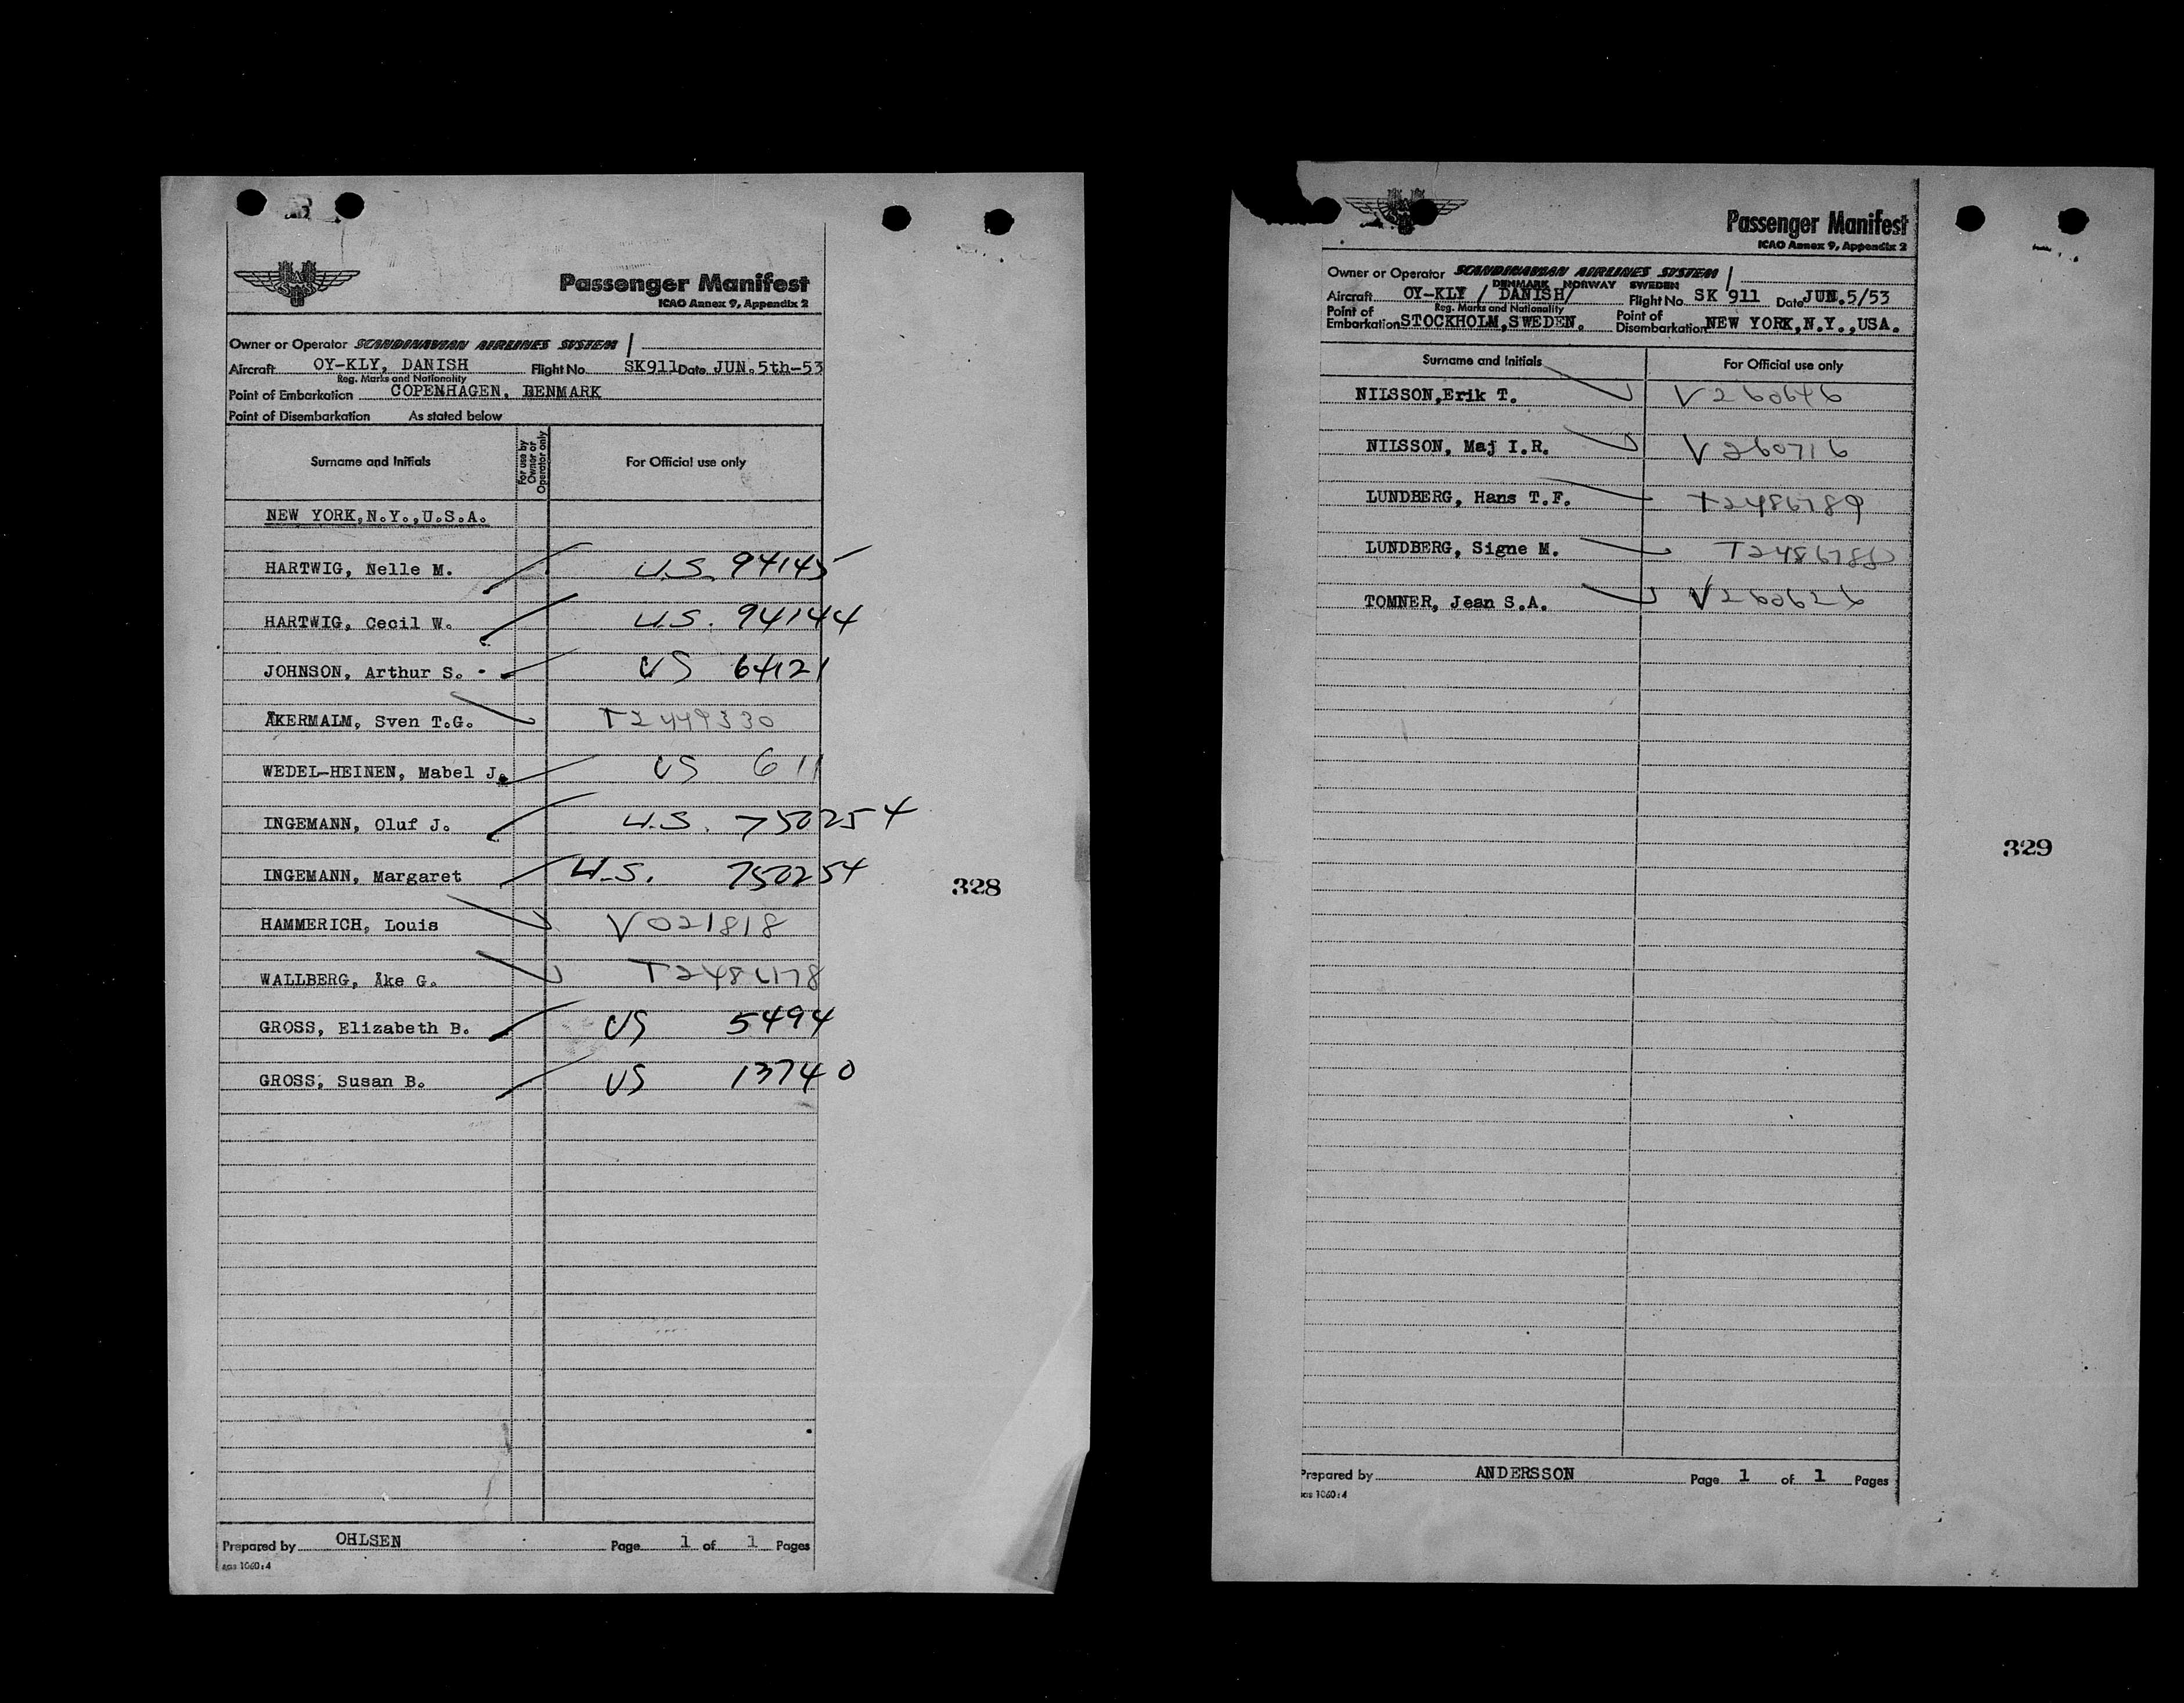 Passenger Manifest
ICAO Annex 9, Appendix 2
Owner or Operator SCANDINAVIAN AIRLINES SYSTEM
Aircraft OY-KLY, DANISH Flight No. SK911 Date JUN. 5th-53
Reg. Marks and Nationality
Point of Embarkation COPENHAGEN, DENMARK
Point of Disembarkation As stated below
Surname and Initials For use by Owner or Operator only For Official use only
NEW YORK, N.Y., U.S.A.
HARTWIG, Nelle M. U.S. 94145
HARTWIG, Cecil W. U.S. 94144
JOHNSON, Arthur S. US 64121
ÅKERMALM, Sven T.G. T2449330
WEDEL-HEINEN, Mabel J. US 611
INGEMANN, Oluf J. U.S. 750254
INGEMANN, Margaret U.S. 750254
HAMMERICH, Louis V021818
WALLBERG, Åke G.
GROSS, Elizabeth B. US 5494
GROSS, Susan B. US 13740
328
Prepared by OHLSEN Page 1 of 1 Pages
sas 1060:4
Passenger Manifest
ICAO Annex 9, Appendix 2
Owner or Operator SCANDINAVIAN AIRLINES SYSTEM
DENMARK NORWAY SWEDEN
Aircraft OY-KLY / DANISH/ Flight No. SK 911 Date JUN. 5/53
Reg. Marks and Nationality
Point of Embarkation STOCKHOLM, SWEDEN. Point of Disembarkation NEW YORK, N.Y., USA.
Surname and Initials For Official use only
NILSSON, Erik T. V260646
NILSSON, Maj I.R. V260716
LUNDBERG, Hans T.F. T2486789
LUNDBERG, Signe M.
TOMNER, Jean S.A. V260626
329
Prepared by ANDERSSON Page 1 of 1 Pages
sas 1060:4